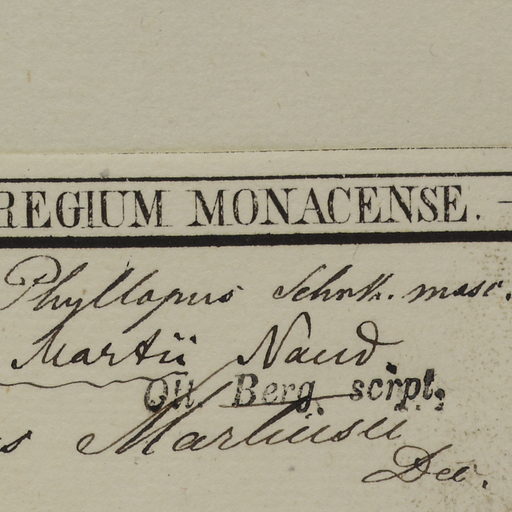 REGIUM MONACENSE.
Phyllopus Schrk. masc.
Martii Naud.
Ott Berg scrpt.
s Martiusii
Dec.